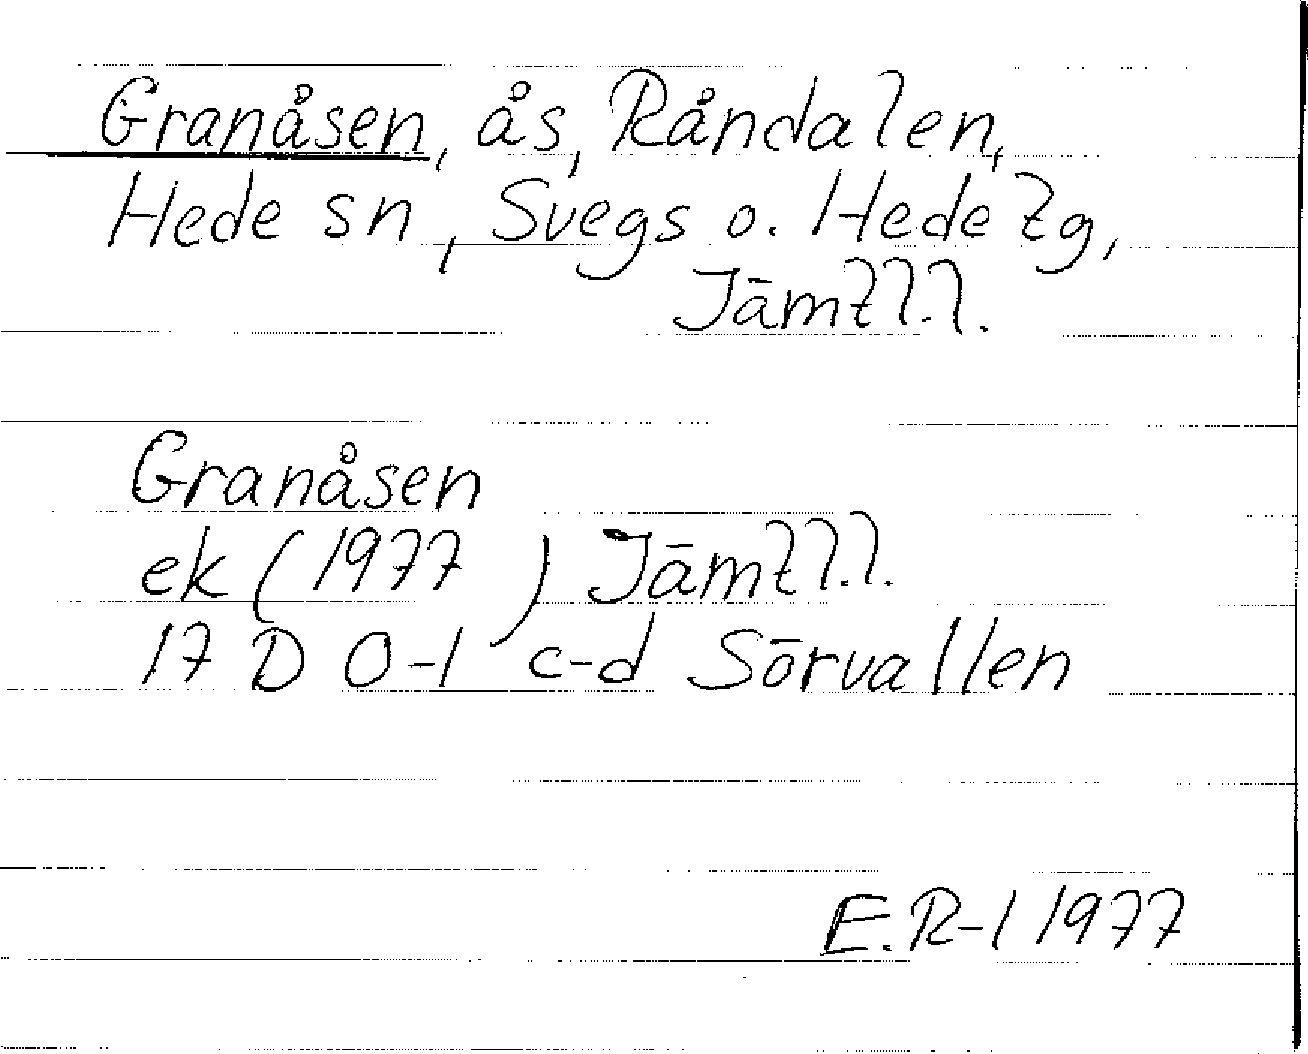 Granåsen, ås, Råndalen,
Hede sn, Svegs o. Hede tg,
Jämtl.l.
Granåsen
ek (1977) Jämtl.l.
17 D 0-1 c-d Sörvallen
E.R-l 1977